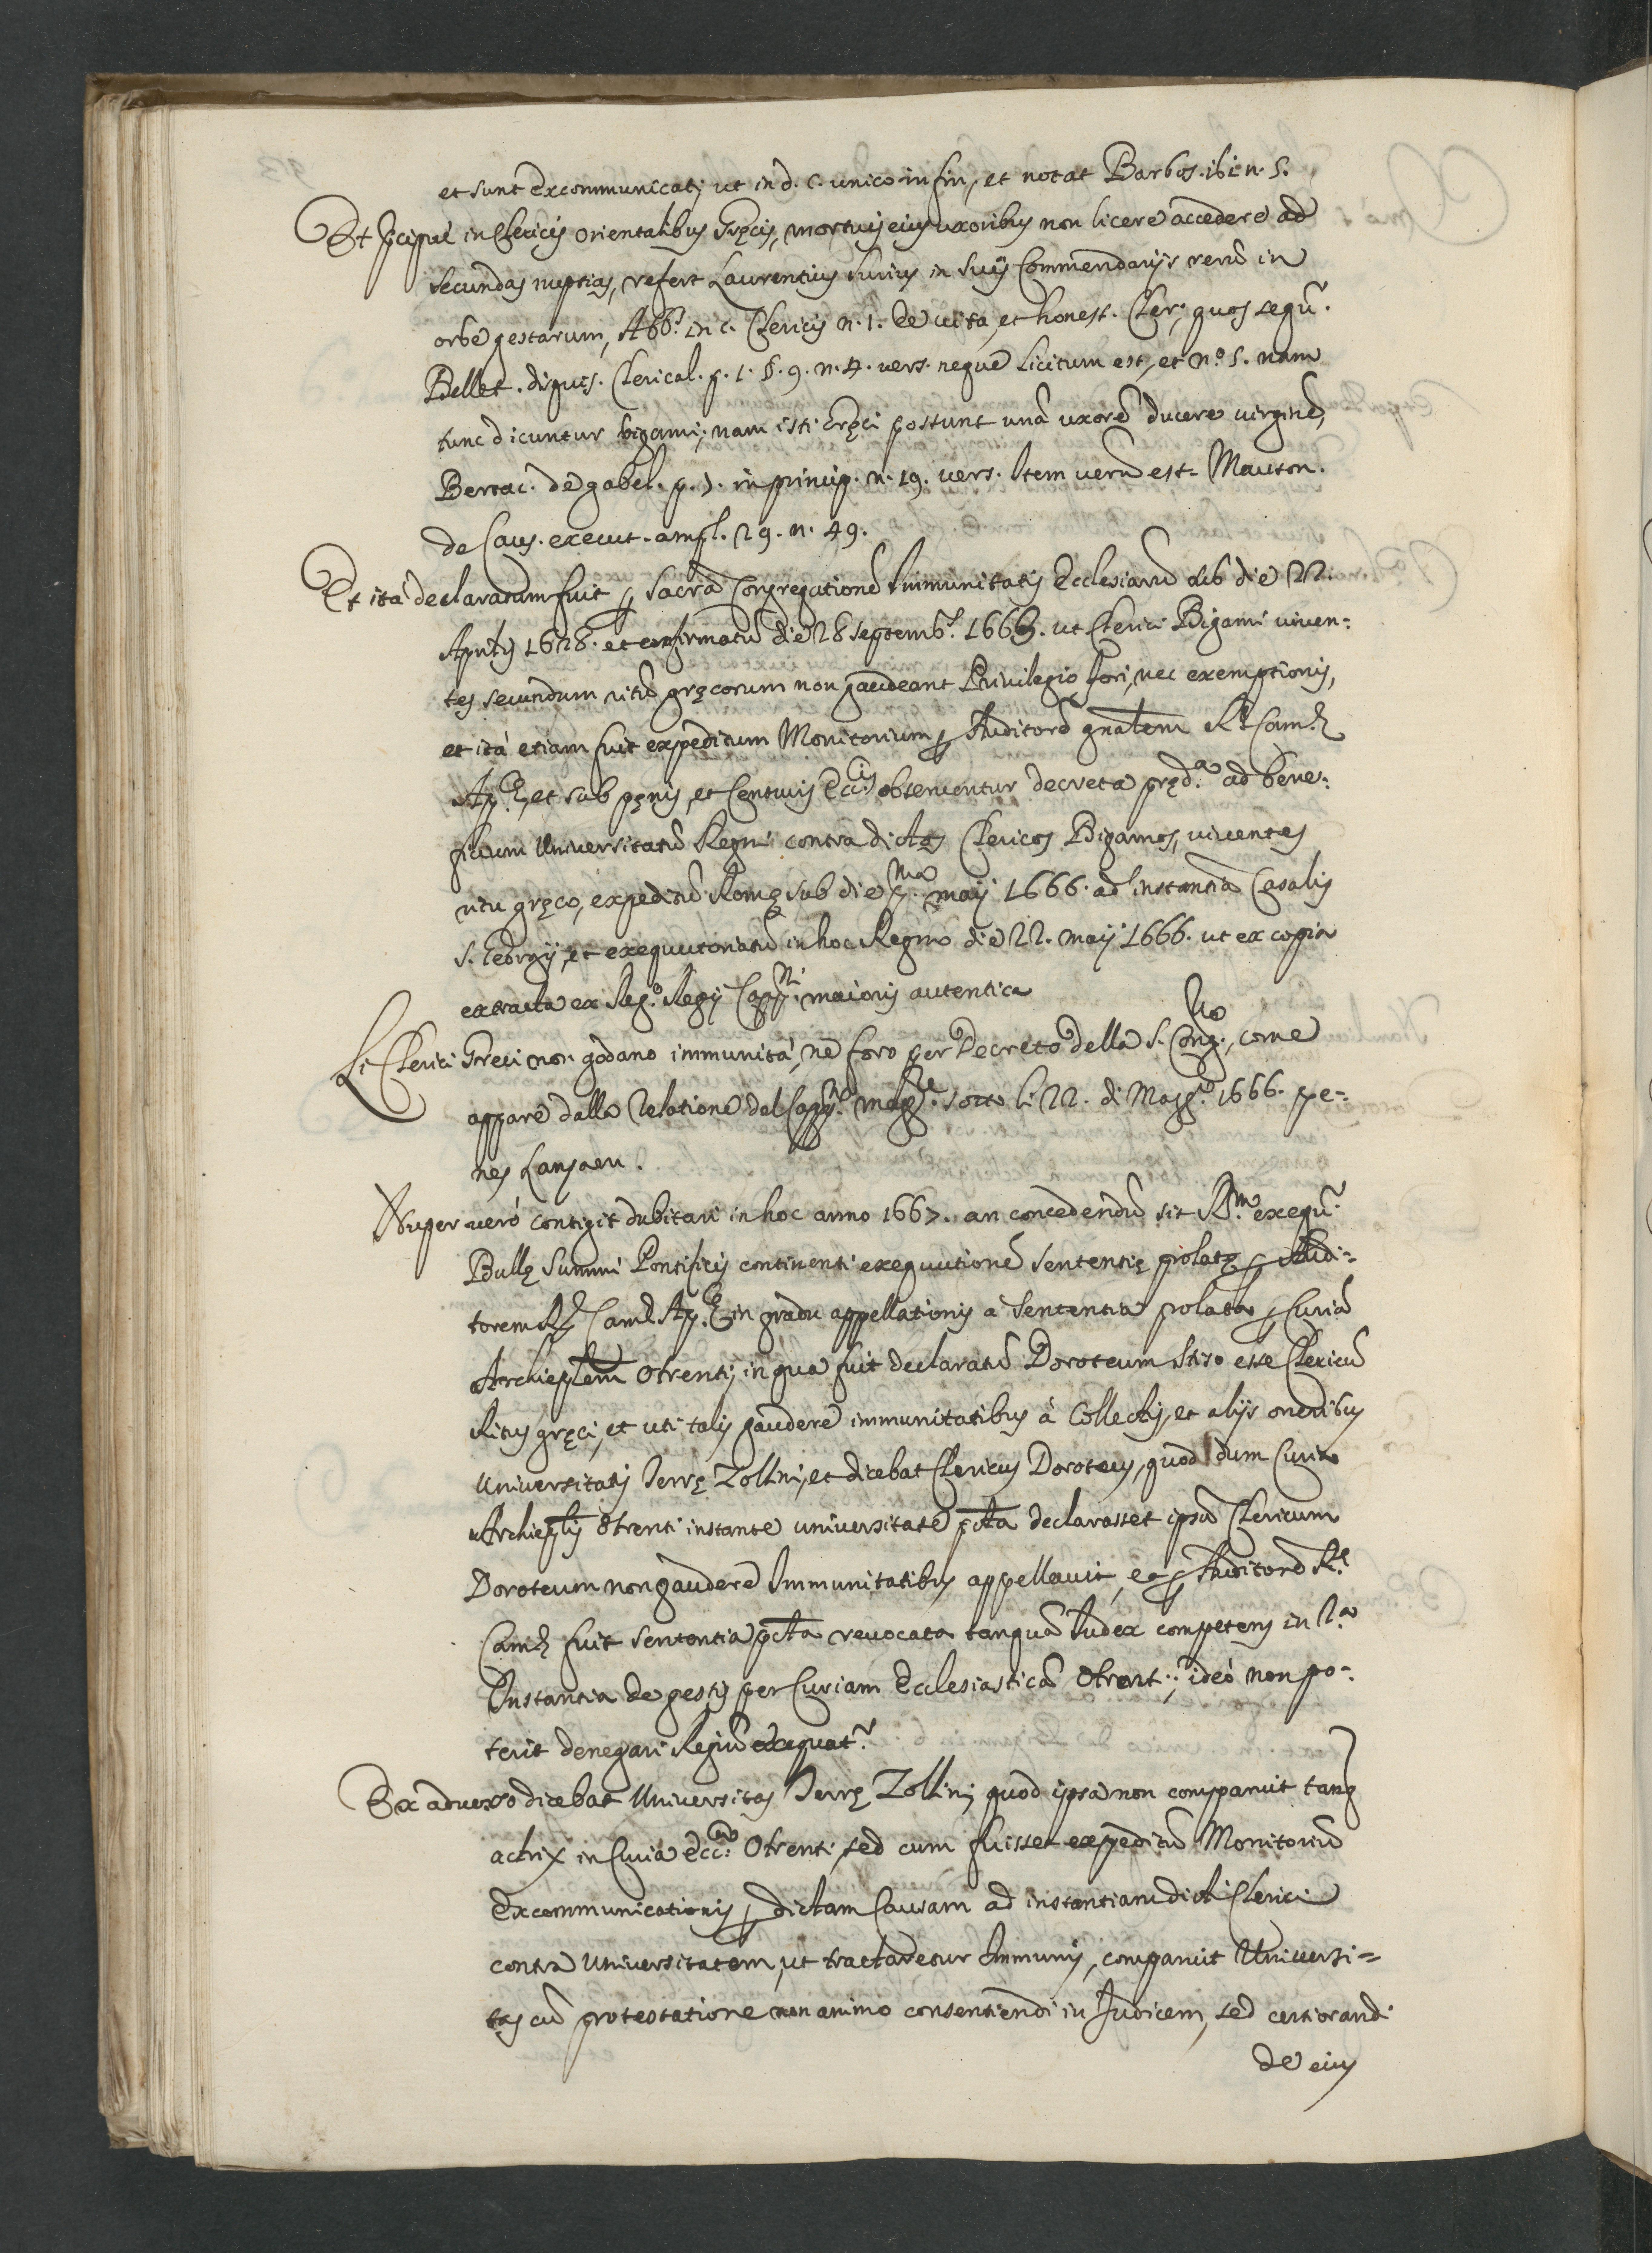 et sunt excommunicati, ut in d. c. unico in fin., et notat Barbos. ibi n. 5.
Et p̃cipuè in Clericis orientalibus Gręcis, mortuis eius uxoribus non licere accedere ad
secundas nuptias, refert Laurentius Surius in suis Commendarijs rerũ in
orbe gestarum, Abb. in c. Clericis n. 1. de vita, et honest. Cler., quos sequ.
Bellet. disquis. Clerical. p. 1. §. 9. n. 4. vers. neque licitum est, et n.º 5. nam
tunc dicuntur bigami, nam isti Gręci possunt unã uxorẽ ducere virginẽ,
Bertac. de gabel. p. 1. in princip. n. 19. vers. Item verũ est. Mauton.
de Caus. execut. ampl. 29. n. 49.
Et ità declaratum fuit ꝑ Sacrã Congregationẽ Immunitatis Ecclesiarũ sub die 22.
Aprilis 1628. et confirmatũ die 28 septemb. 1663. ut Clerici Bigami viven=
tes secundum ritũ gręcorum non gaudeant Privilegio fori, nec exemptionis,
et ità etiam fuit expeditum Monitorium ꝑ Auditorẽ gñalem R. Camę
Ap.cę, et sub pęnis, et Censuris Ecc.cis observentur decreta pręd.a ad bene=
ficium Universitatũ Regni contra dictos Clericos Bigamos, viventes
ritu gręco, expeditũ Romę sub die p.ma maij 1666. ad instantiã Casalis
S. Georgij, et exequutoriatũ in hoc Regno die 22. maij 1666. ut ex copia
extracta ex Reg.º Regij Capp.ni maioris autentica
Li Clerici Greci non godano immunità, ne foro per Decreto della S. Cong.ne, come
appare dalla Relatione del Capp.no magg.re sotto li 22. di Magg.º 1666. pe=
nes Lanzaeu.
Nuper verò contigit dubitari in hoc anno 1667. an concedendũ sit R.m exequ.
Bullę Summi Pontificis continenti exequutionẽ sententię prolatę ꝑ Audi=
torem R. Camę Ap.cę in gradu appellationis a sententia prolata ꝑ Curiã
Archieplem Otrenti, in qua fuit declaratũ Doroteum Stiso esse Clericũ
Ritus gręci, et uti talis gaudere immunitatibus à Collectis, et alijs oneribus
Universitatis Terrę Zollini, et dicebat Clericus Doroteus, quod dum Curia
Archieplis Otrenti instante universitate p̃cta declarasset ipsũ Clericum
Doroteum non gaudere Immunitatibus appellavit, et ꝑ Auditorẽ R.
Camę fuit sententia p̃cta revocata tanquã Iudex competens in 2.a
Instantia de gestis per Curiam Ecclesiasticã Otrent.; ideò non po=
terit denegari Regiũ exequat.
Ex adverso dicebat Universitas Terrę Zollini, quod ipsa non comparuit tanq
actrix in Curia ecc.ca Otrenti, sed cum fuisset expeditũ Monitoriũ
Excommunicationis ꝑ dictam Causam ad instantiam dicti Clerici
contra Universitatem, ut tractaretur Immunis, comparuit Universi=
tas cũ protestatione non animo consentiendi in Judicem, sed certiorandi
de eius